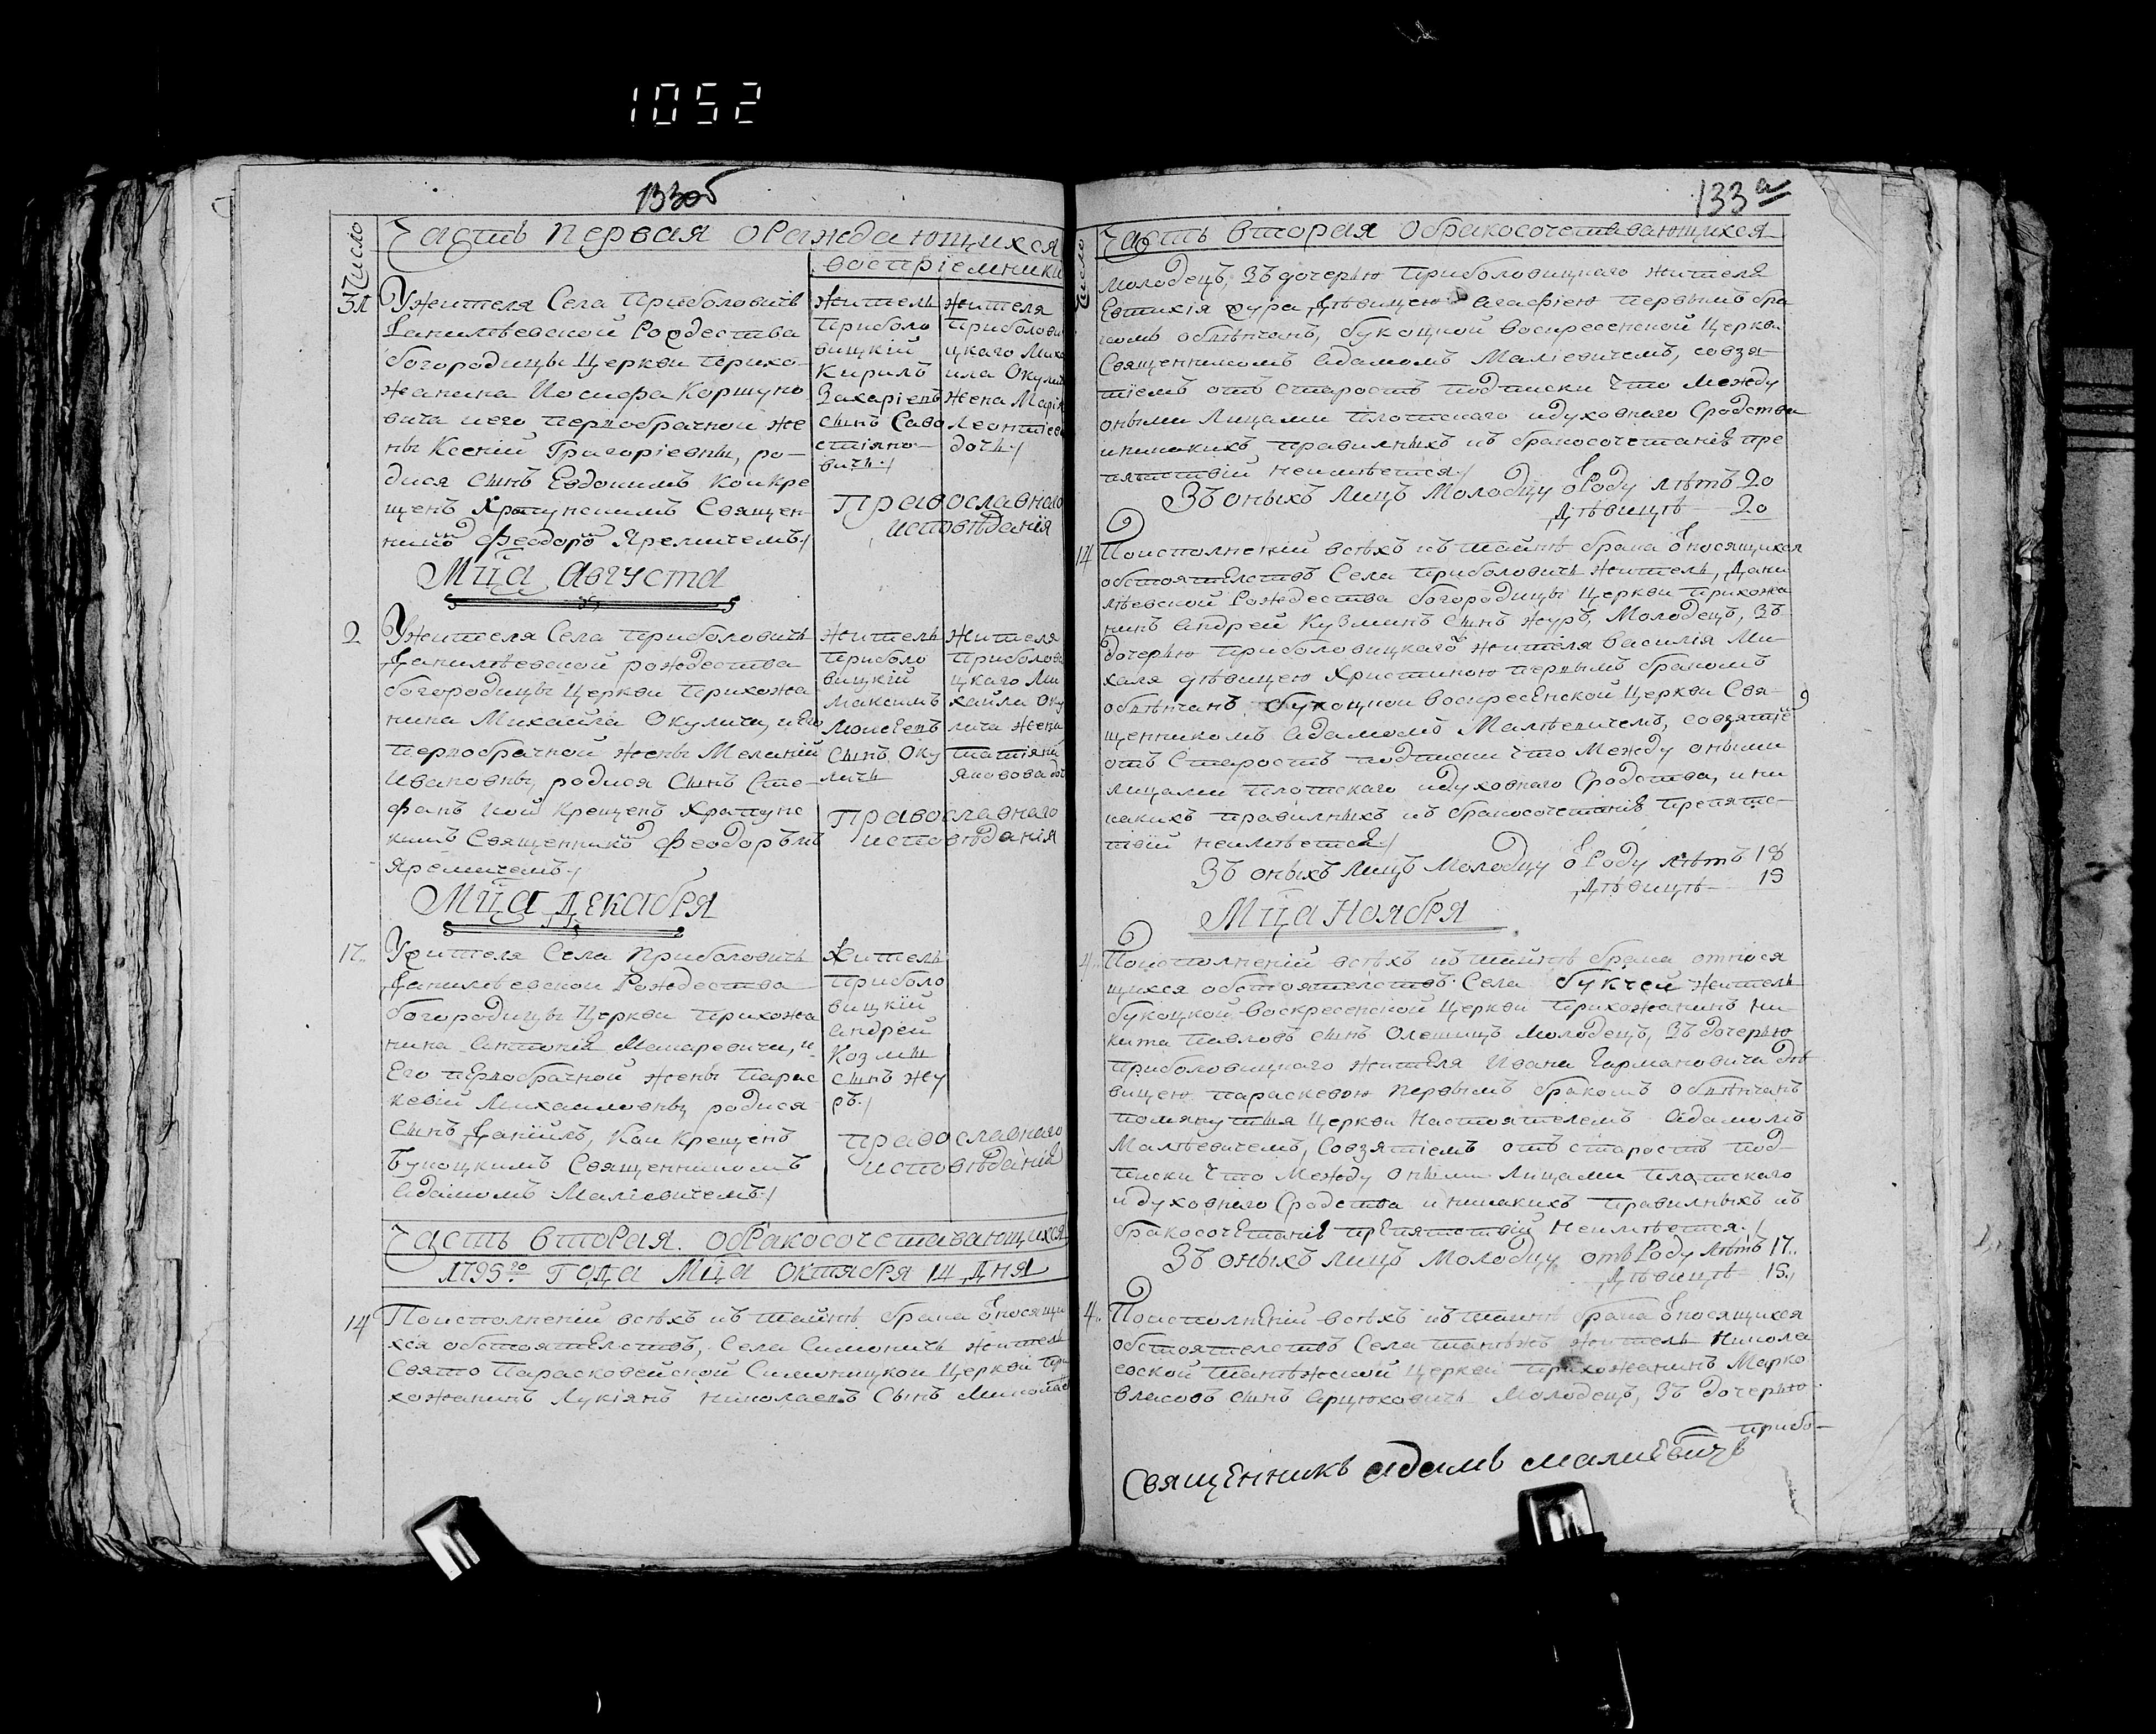 1052
133об
Число
Часть Первая ораждающихся
воспріемники
31
Ужителя Села Приболовичъ
Данилъевской Рождества
богородицы Церкви Прихо
жанина Иосифа Коршуно
вича иего первобрачной же
ны Ксеніи Григоріевны, ро-
дися сынъ Евдокимъ Кои кре
щенъ Храпунскимъ Священ-
нико Феодоро Яремичемъ
житель
Приболо
вицкій
Кирилъ
Захаріевъ
сынъ Саво
стіяно-
вичъ
жителя
Приболови
цкаго Миха
ила Окули
жена Марія
Леонтіева
дочь
Православнаго
исповѣданія
Мца Августа
2
Ужителя Села Приболовичъ
Данилъевской рождества
богородицы Церкви Прихожа
нина Михайла Окулича, иЕго
первобрачной жены Меланіи
Ивановны, родися Сынъ Сте-
фанъ Кой Крещенъ Храпунс
кимъ Священнико Феодоромъ
Яремичемъ
житель
Приболо
вицкій
Максимъ
Моисеевъ
Сынъ Оку
личъ
жителя
Приболови
цкаго Ми
хайла Оку
лича жена
татіяна
Яковова доч
Православнаго
исповѣданія
Мца Декабря
17..
Ужителя Села Приболовичъ
Данилъевской Рождества
богородицы Церкви прихожа
нина Антонія Макаревича, и
Его первобрачной жены Парас
кевіи Михаиловны родися
Сынъ Даніилъ, Кои Крещенъ
Букоцкимъ Священникомъ
Адамомъ Маліевичемъ
Житель
Приболо
вицкій
Андрей
Козмы
сынъ жу
ръ
Православнаго
исповѣданія
Часть вторая обракосочетавающихся
1795го Года Мца Октября 14 Дня
14
Поисполненіи всѣхъ къ тайнѣ брака относящи
хся обстоятелствъ, Села Симоничъ жител
Свято Парасковейской Симоницкой Церкви При
хожанинъ Лукіянъ Николаевъ Сынъ
133а
Число
Часть вторая обракосочетавающихся
молодецъ, Зъ дочерью Приболовицкаго жителя
Евтихія Дѣвицею Агафіею первымъ бра
комъ обвѣнчанъ, букоцкой Воскресенской Церкви
Священникомъ Адамомъ Маліевичемъ, совзя-
тіемъ отъ Старостъ подписки Что между
оными Лицами плотскаго идуховнаго Сродства
иникакихъ правилныхъ къ бракосочетаніе пре
пятствій неимѣется
Зъ оныхъ Лицъ Молодцу о Роду лѣтъ 20
Дѣвицѣ 20
14
Поисполненіи всѣхъ къ тайнѣ брака относящихся
обстоятелствъ Села приболовичъ житель, Дани
лъевской Рождества богородицы Церкви прихожа
нинъ Андрей Кузминъ Сынъ Журъ, Молодецъ, Зъ
дочерью Приболовицкаго жителя Василія Ми-
халя дѣвицею Христиною первымъ бракомъ
обвѣнчанъ букоцкой воскресенской Церкви Свя-
щенникомъ Адамомъ Малѣевичемъ, совзятіе
отъ Старостъ подписки Что Между оными
лицами плотскаго идуховнаго Сродства, ини
какихъ правилныхъ къ бракосочетаніе препятс-
твій неимѣется
Зъ оныхъ Лицъ Молодцу о Роду лѣтъ 18
Дѣвицѣ 19
Мца Ноября
4..
Поисполненіи всѣхъ къ тайнѣ брака относя
щихся обстоятелствъ Села букчей житель
букоцкой воскресенской Церкви Прихожанинъ Ни-
кита Павловъ сынъ Олешицъ Молодецъ, Зъ дочерью
Приболовицкаго жителя Ивана Гармановича дѣ
вицею параскевою первымъ бракомъ обвѣнчанъ
помянутыя Церкви Настоятелемъ Адамомъ
Малѣевичемъ, Совзятіемъ отъ старостъ под-
писки Что Между оными Лицами плотскаго
идуховнаго Сродства иникакихъ правилныхъ къ
бракосочетаніе препятствій неимѣется
Зъ оныхъ лицъ Молодцу отъ Роду лѣтъ 17..
Дѣвицѣ 15
4..
Поисполненіи всѣхъ къ тайнѣ брака относящихся
обстоятелствъ Села танѣжъ житель Никола
евской танѣжской Церкви прихожанинъ Марко
власовъ сынъ Арцюховичъ Молодецъ, Зъ дочерью
прибо-
Священникъ Адамъ Малиевичъ